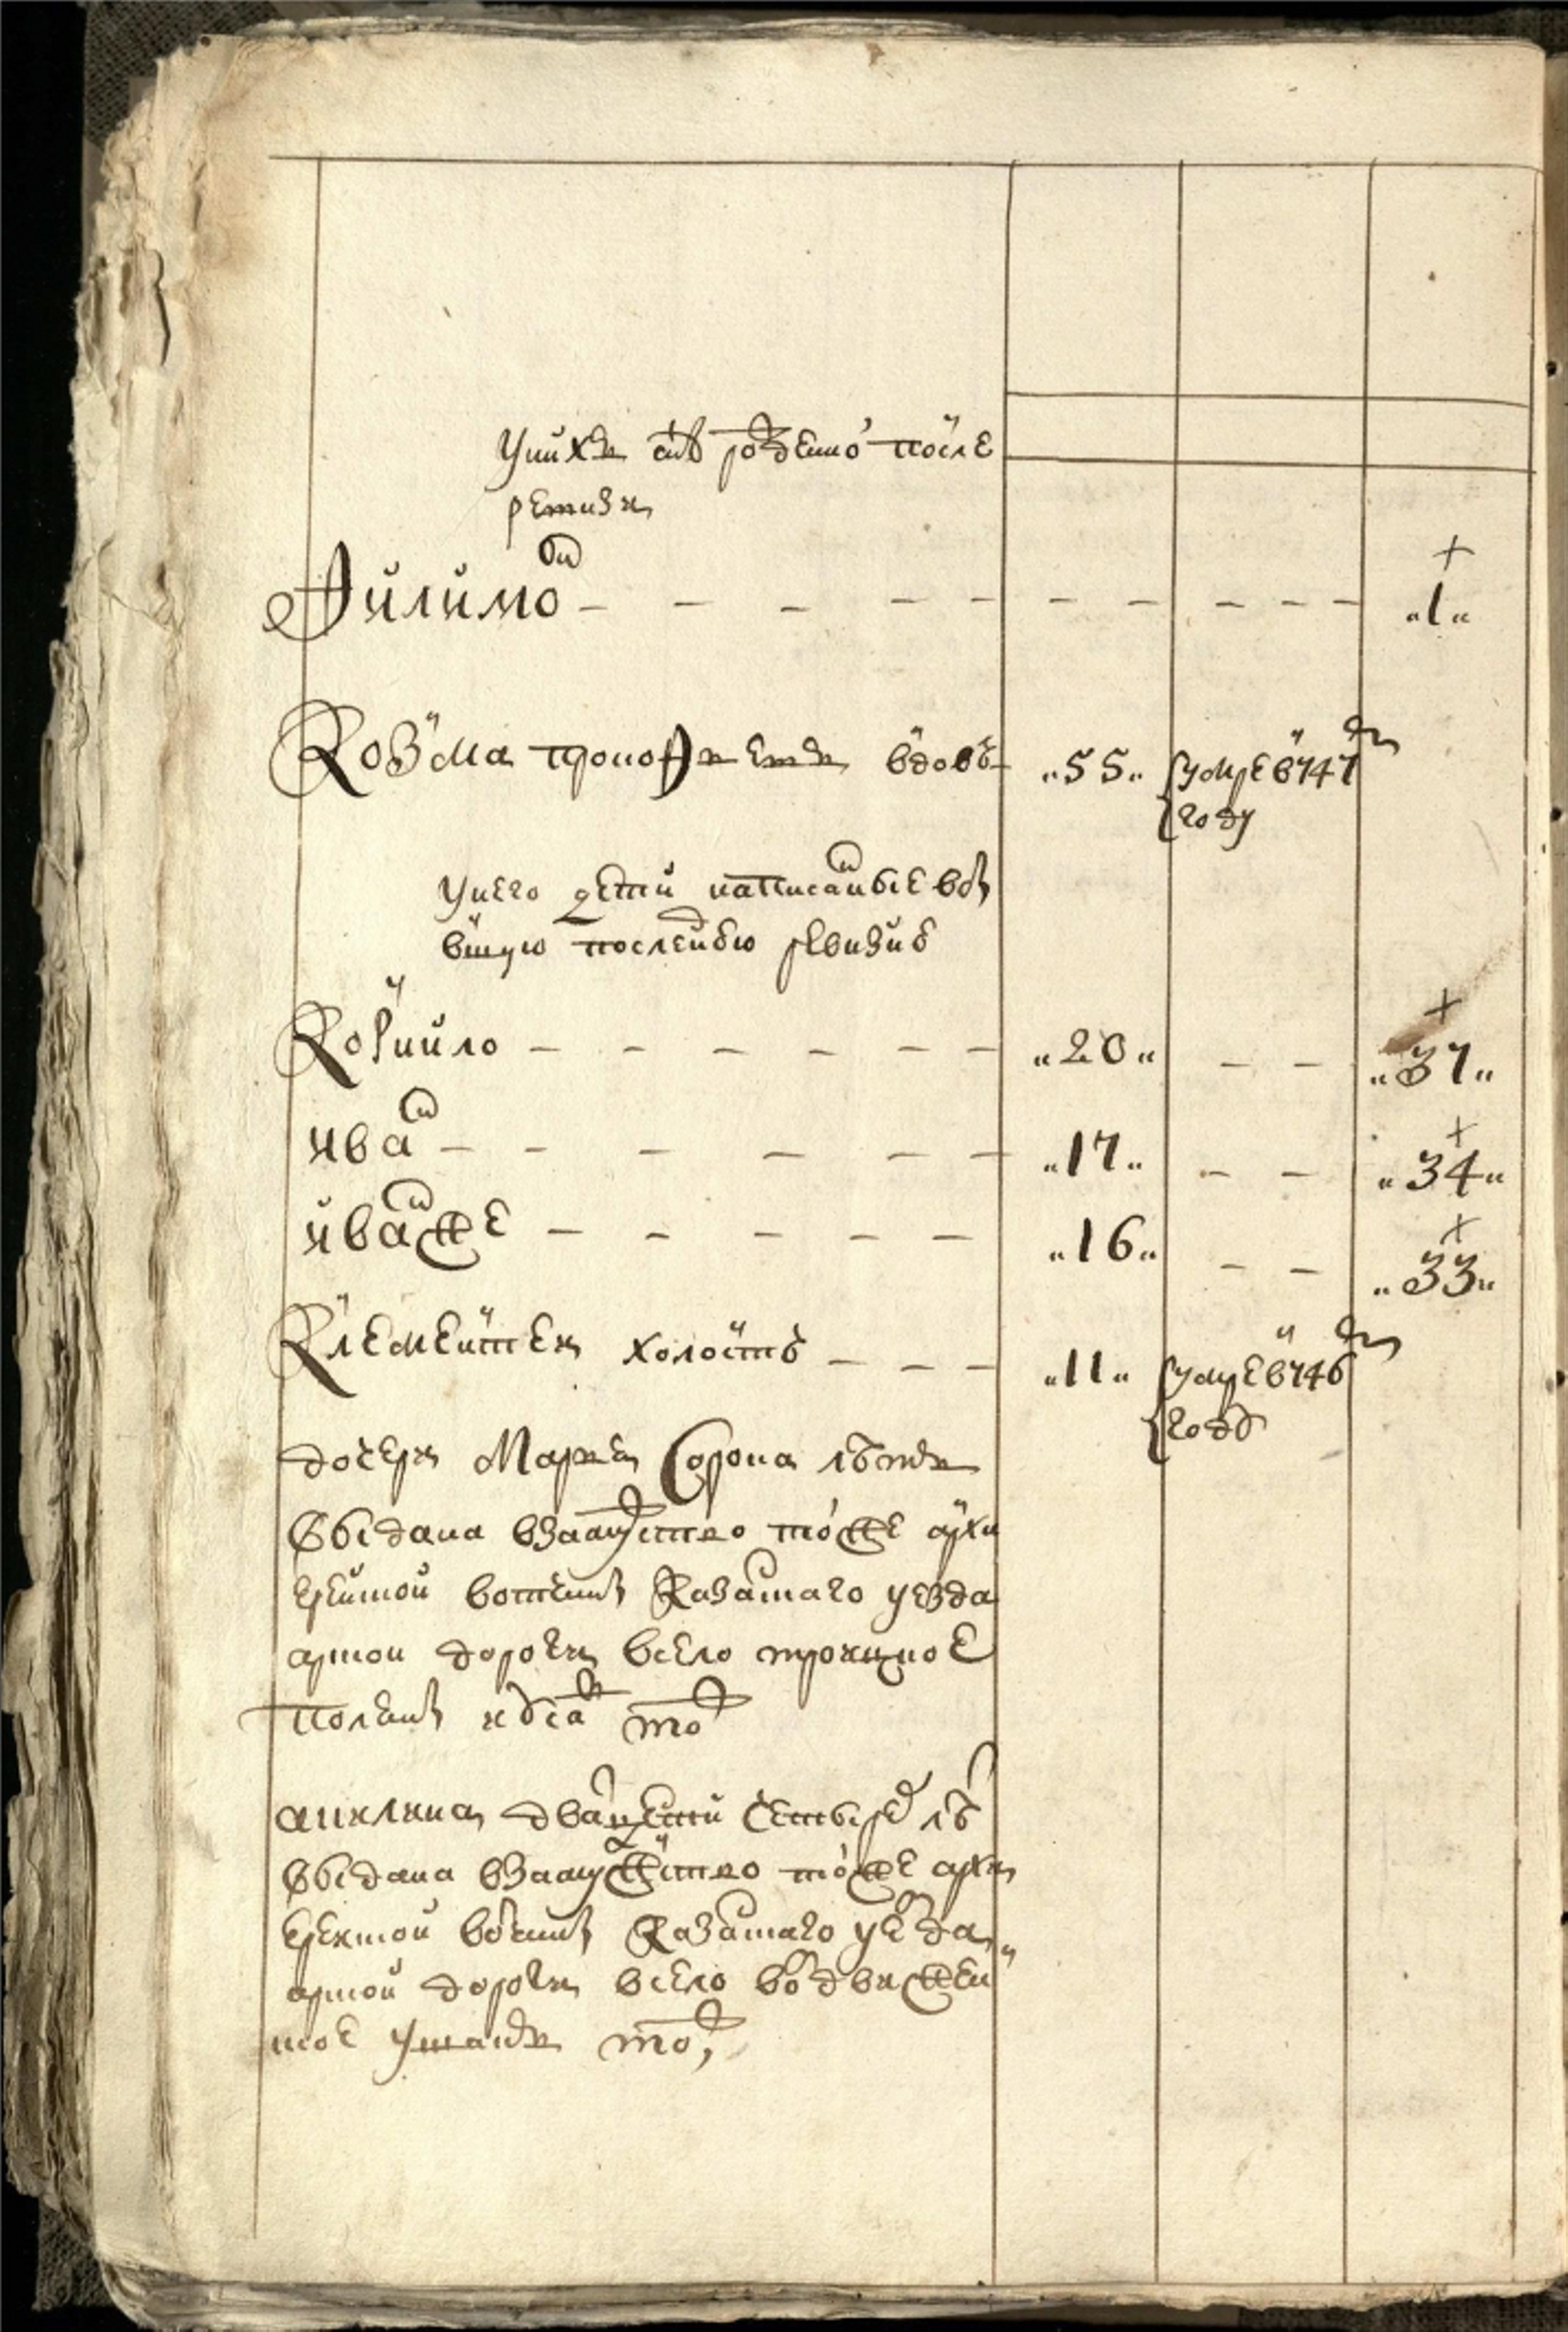 у них снъ рожденной после
ревизи
Филимон — — — — — — — — — — „1„
Козма Прокофьевъ вдовъ „55„ умре в 747м
году
у него дети написанные в бы
вшую последнюю ревизию
Корнило — — — — — — „20„ — — „37„
Иван — — — — — — „17„ — — „34„
Иван же — — — — — „16„ — — „33„
Клементей холостъ — — — „11„ умре в 746м
году
дочери Марья сорока летъ
выдана в замужство той же архи
ерейской вотчины Казанского уезда
арской дороги в село Троицкое
поляны
Акилина дватцети четырех лет
выдана в замужство той же архи
ерейской вотчины Казанского уезда
арской дороги в село Воздвижен
ское